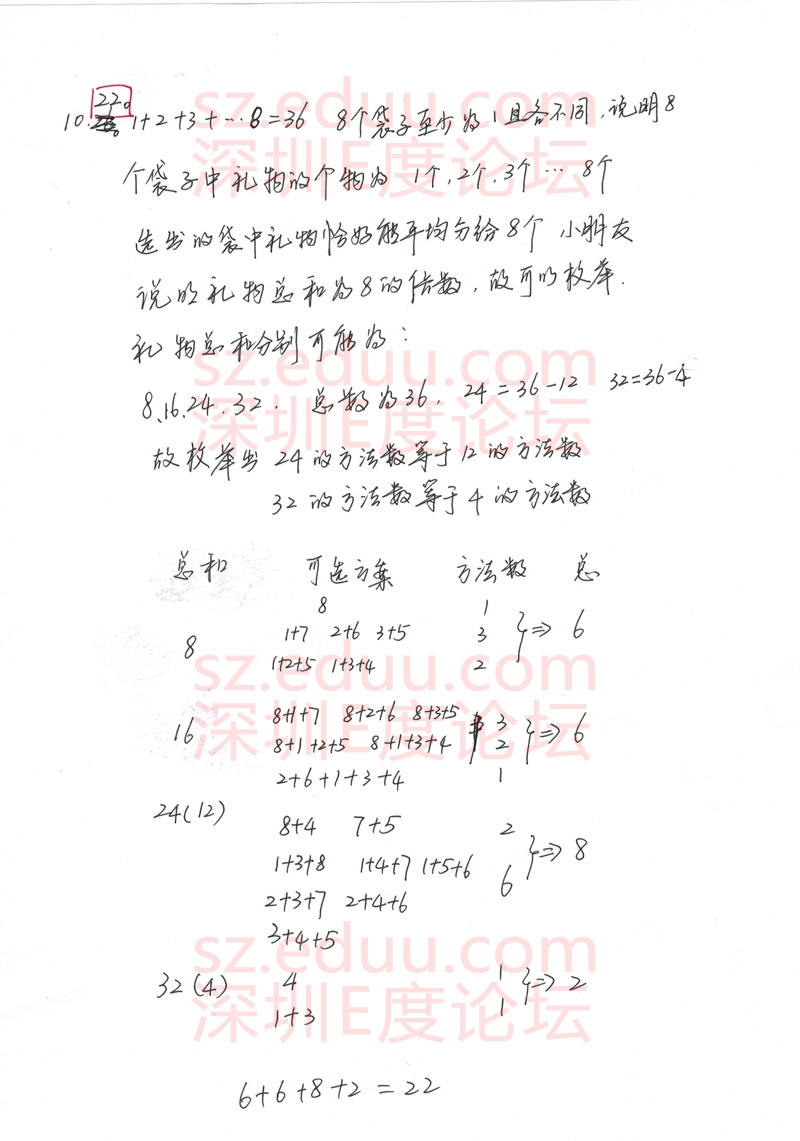 22。
10. 1+2+3+…8=36 8个袋子至少为1且各不同,说明8
个袋子中礼物的个物为 1个,2个,3个…8个
选出的袋中礼物恰好能平均分给8个 小朋友
说明礼物总和为8的倍数,故可以枚举.
礼物总和分别可能为:
8、16、24、32. 总数为36, 24=36-12 32=36-4
故枚举出 24的方法数等于12的方法数
32的方法数等于4的方法数
总和 可选方案 方法数 总
8 1
8 1+7 2+6 3+5 3 }⇒ 6
1+2+5 1+3+4 2
8+1+7 8+2+6 8+3+5 3
16 8+1+2+5 8+1+3+4 2 }⇒ 6
2+6+1+3+4 1
24(12) 8+4 7+5 2
1+3+8 1+4+7 1+5+6 6 }⇒ 8
2+3+7 2+4+6
3+4+5
32(4) 4 1 }⇒ 2
1+3 1
6+6+8+2=22
sz.eduu.com
深圳E度论坛
sz.eduu.com
深圳E度论坛
sz.eduu.com
深圳E度论坛
sz.eduu.com
深圳E度论坛